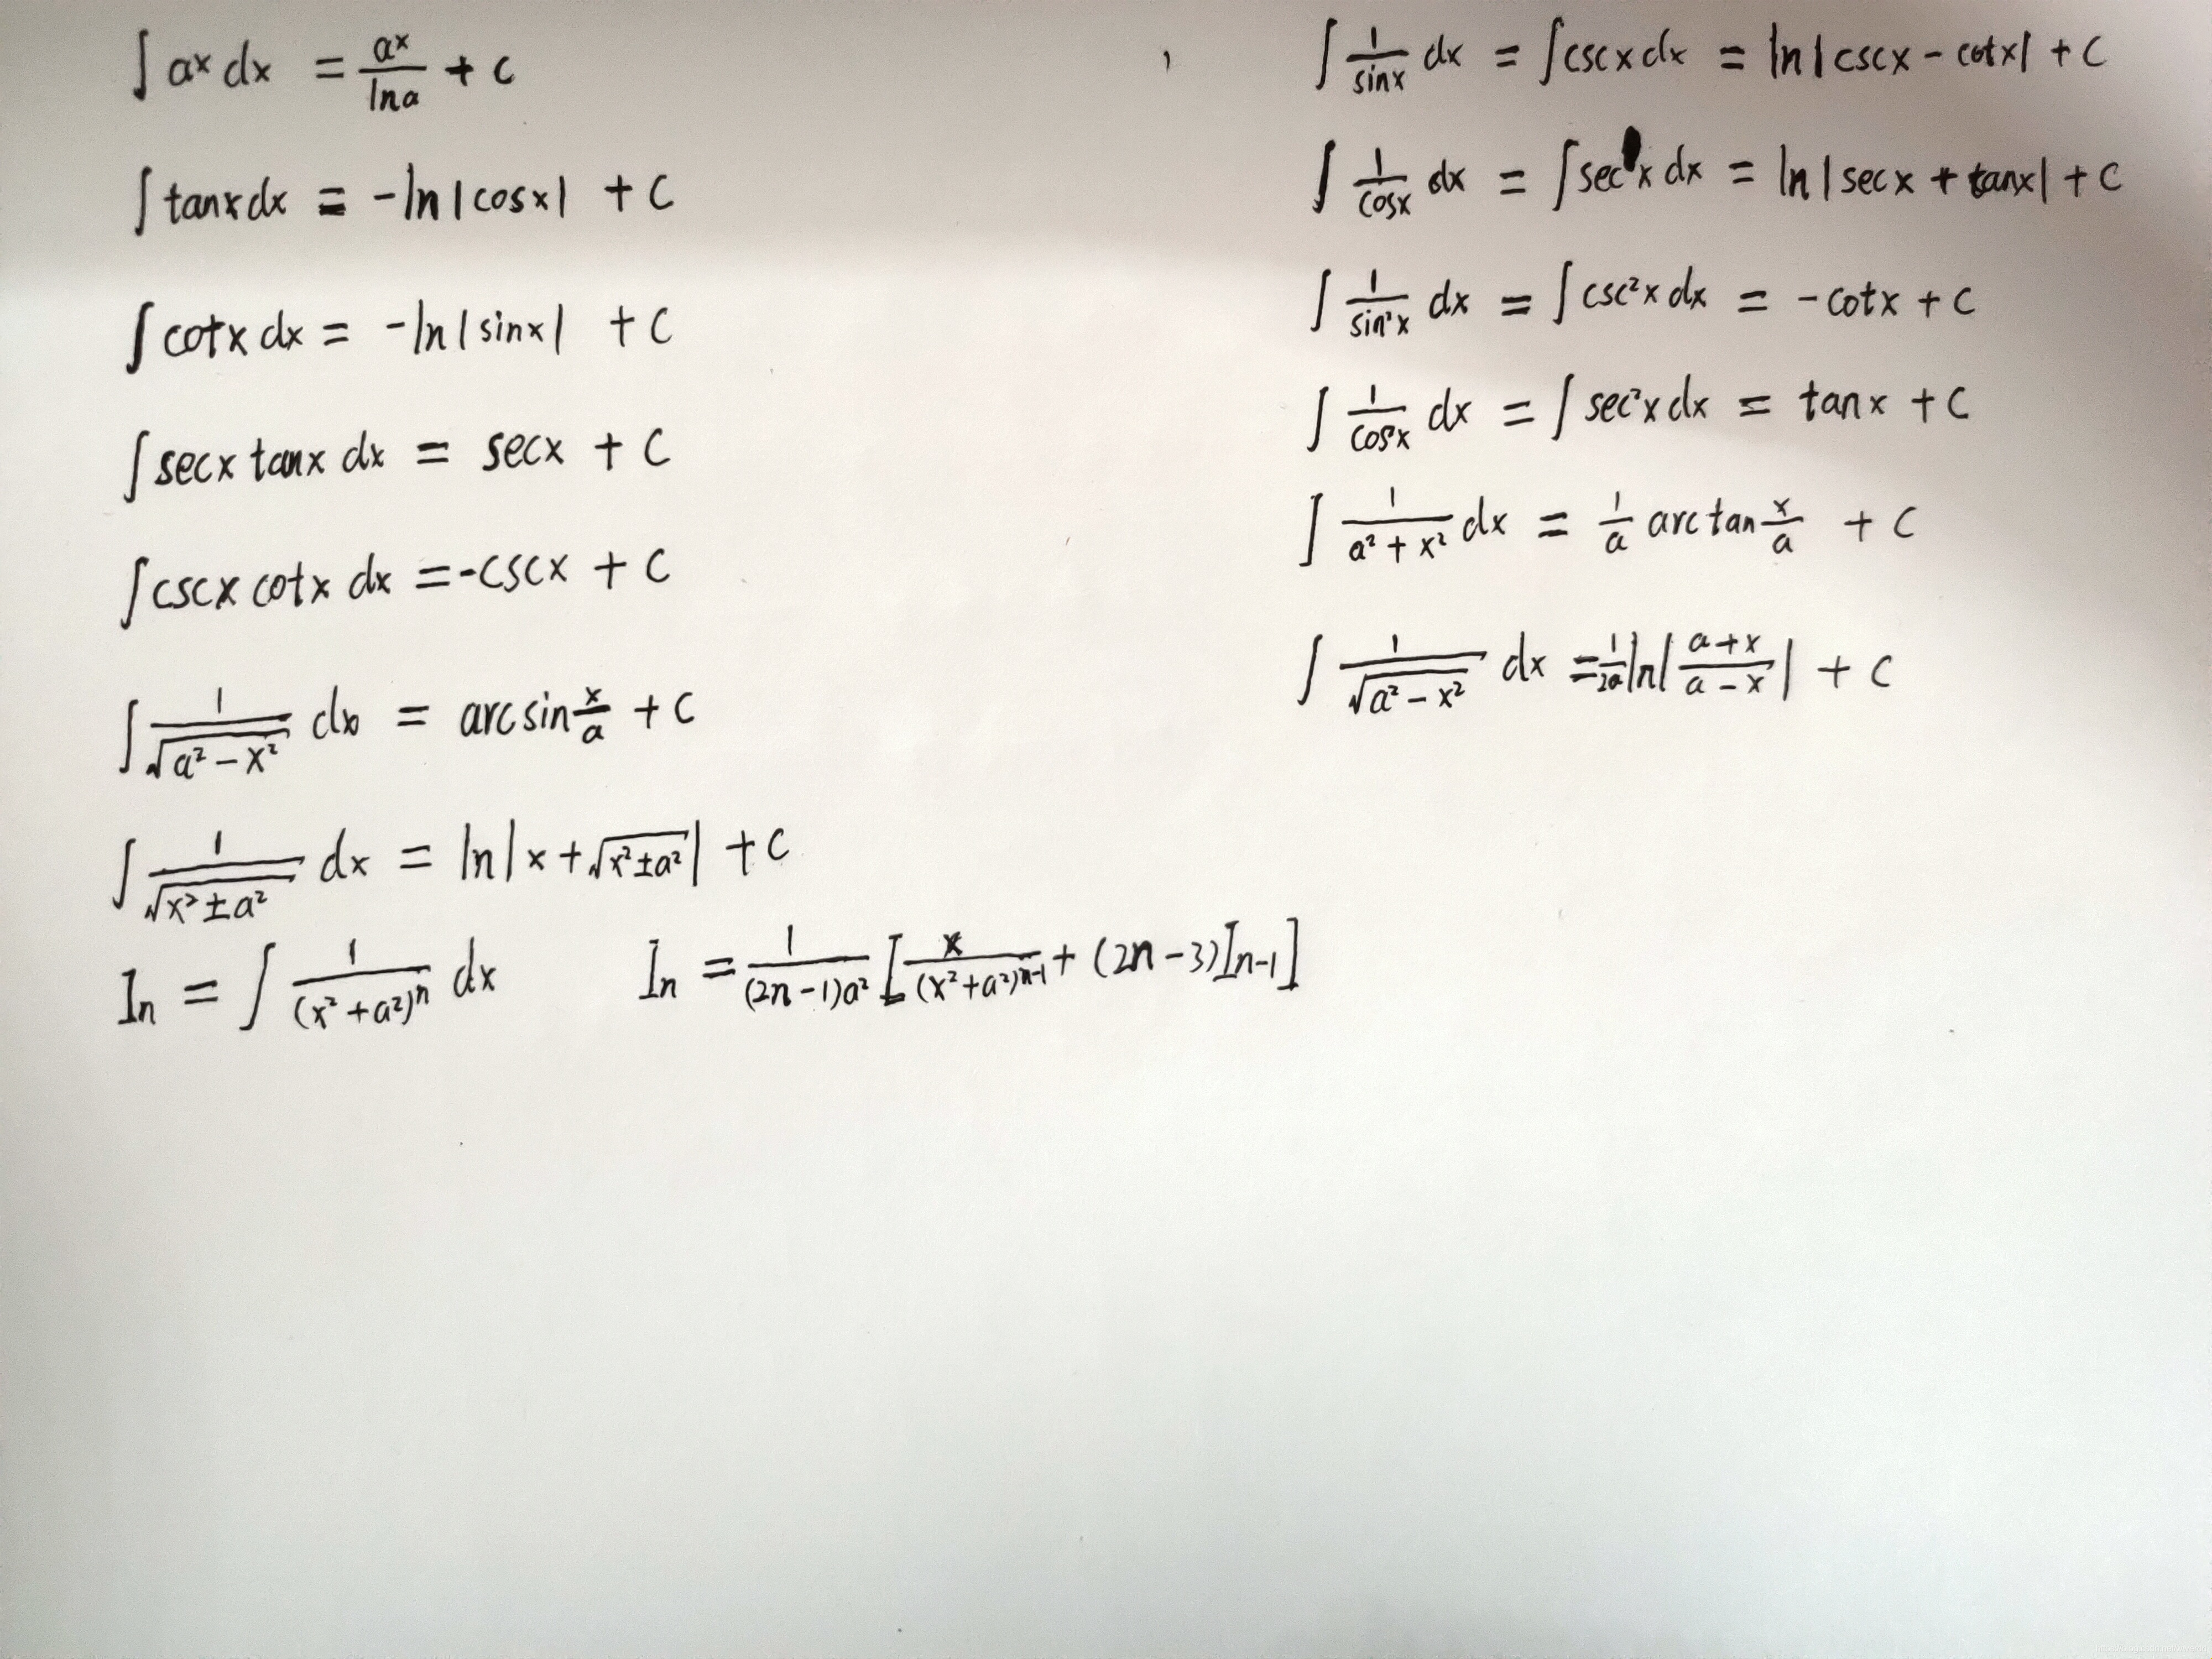 ∫ aˣ dx = aˣ/lna + C
∫ tanx dx = -ln|cosx| + C
∫ cotx dx = -ln|sinx| + C
∫ secx tanx dx = secx + C
∫ cscx cotx dx = -cscx + C
∫ 1/√(a² - x²) dx = arcsin x/a + C
∫ 1/√(x² ± a²) dx = ln|x + √(x² ± a²)| + C
In = ∫ 1/(x² + a²)ⁿ dx   In = 1/((2n-1)a²) [x/(x² + a²)ⁿ⁻¹ + (2n-3)In-1]
∫ 1/sinx dx = ∫ cscx dx = ln|cscx - cotx| + C
∫ 1/cosx dx = ∫ secx dx = ln|secx + tanx| + C
∫ 1/sin²x dx = ∫ csc²x dx = -cotx + C
∫ 1/cos²x dx = ∫ sec²x dx = tanx + C
∫ 1/(a² + x²) dx = 1/a arctan x/a + C
∫ 1/√(a² - x²) dx = 1/2a ln|(a+x)/(a-x)| + C